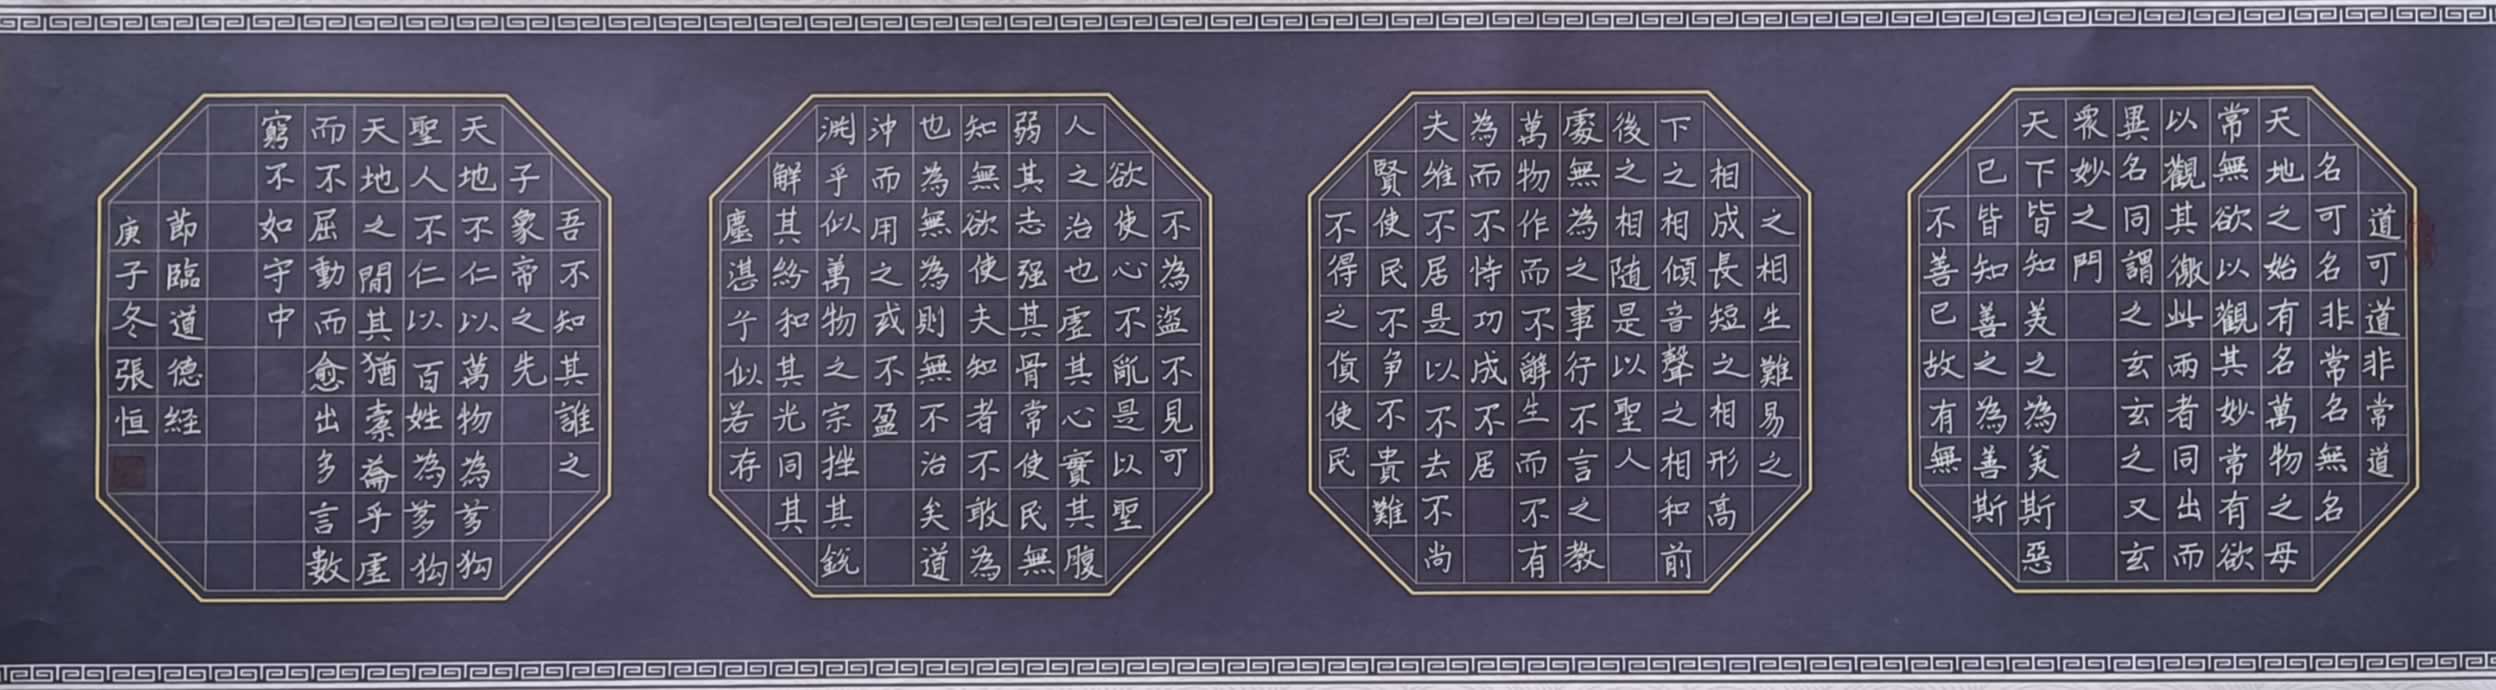 道可道非常道
名可名非常名無名
天地之始有名萬物之母
常無欲以觀其妙常有欲
以觀其徼此兩者同出而
異名同謂之玄玄之又玄
眾妙之門
天下皆知美之為美斯惡
已皆知善之為善斯
不善已故有無
之相生難易之
相成長短之相形高
下之相傾音聲之相和前
後之相随是以聖人
處無為之事行不言之教
萬物作而不辭生而不有
為而不恃功成不居
夫维不居是以不去不尚
賢使民不争不貴難
不得之貨使民
不為盜不見可
欲使心不亂是以聖
人之治也虛其心實其腹
弱其志强其骨常使民無
知無欲使夫知者不敢為
也為無為則無不治矣道
沖而用之或不盈
渊乎似萬物之宗挫其銳
解其紛和其光同其
塵湛兮似若存
吾不知其誰之
子象帝之先
天地不仁以萬物為芻狗
聖人不仁以百姓為芻狗
天地之間其猶橐籥乎虛
而不屈動而愈出多言數
窮不如守中
節臨道德経
庚子冬張恒